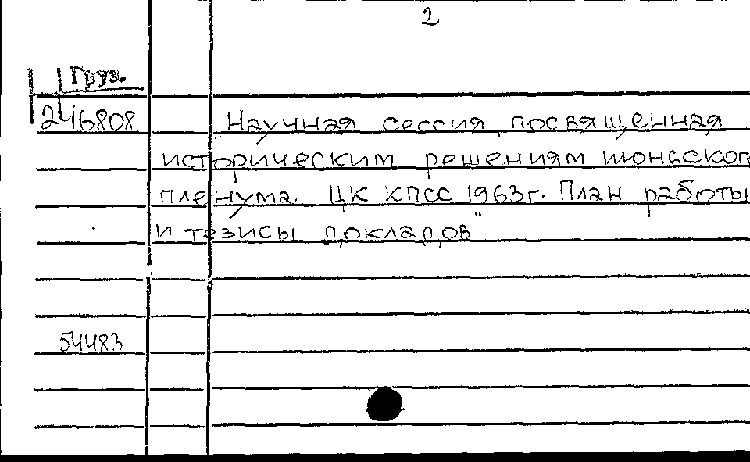 2
Груз.
246808 Научная сессия, посвященная
историческим решениям июньског
пленума. ЦК КПСС 1963г. План работы
и тезисы докладов"
54483